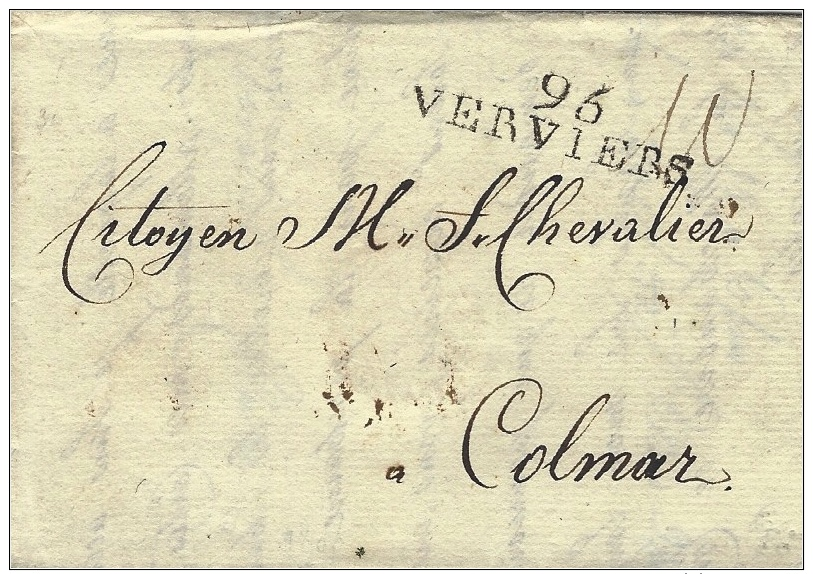 96
VERVIERS
10
Citoyen M„ F„ Chevalier
a Colmar.